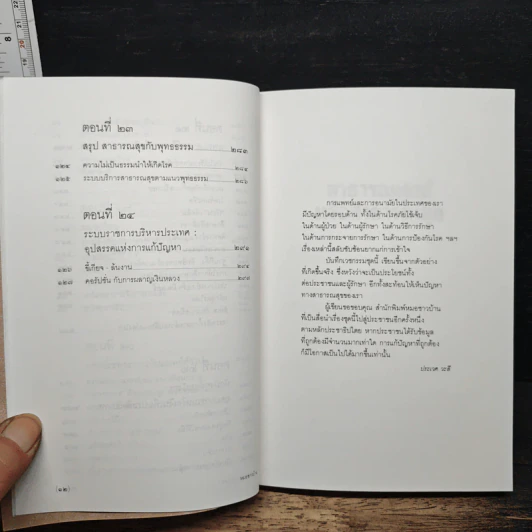 ตอนที่ ๒๓
สรุป สาธารณสุขกับพุทธธรรม
ความไม่เป็นธรรมนำให้เกิดโรค
ระบบบริการสาธารณสุขตามแนวพุทธธรรม
ตอนที่ ๒๔
ระบบราชการบริหารประเทศ :
อุปสรรคแห่งการแก้ปัญหา
ขี้เกียจ - ล้นงาน
คอรัปชั่น กับการผลาญเงินหลวง
การแพทย์และการอนามัยในประเทศของเรา
มีปัญหาโดยรอบด้าน ทั้งในด้านโรคภัยไข้เจ็บ
ในด้านผู้ป่วย ในด้านผู้รักษา ในด้านวิธีการรักษา
ในด้านการกระจายการรักษา ในด้านการป้องกันโรค ฯลฯ
เรื่องเหล่านี้สลับซับซ้อนยากแก่การเข้าใจ
บันทึกเวชกรรมชุดนี้ เขียนขึ้นจากตัวอย่าง
ที่เกิดขึ้นจริง ซึ่งหวังว่าจะเป็นประโยชน์ทั้ง
ต่อประชาชนและผู้รักษา อีกทั้งสะท้อนให้เห็นปัญหา
ทางสาธารณสุขของเรา
ผู้เขียนขอขอบคุณ สำนักพิมพ์หมอชาวบ้าน
ที่เป็นสื่อนำเรื่องชุดนี้ไปสู่ประชาชนอีกครั้งหนึ่ง
ตามหลักประชาธิปไตย หากประชาชนได้รับข้อมูล
ที่ถูกต้องมีจำนวนมากเท่าใด การแก้ปัญหาที่ถูกต้อง
ก็มีโอกาสเป็นไปได้มากขึ้นเท่านั้น
ประเวศ วะสี